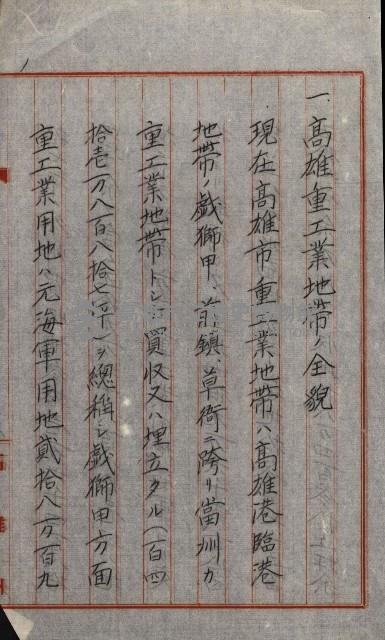 一、高雄重工業地帶ノ全貌
現在高雄市重工業地帶ハ高雄港臨港
地帶ノ戯獅甲、前鎮、草衙ニ跨リ當州カ
重工業地帶トシテ買収又ハ埋立タル(百四
拾壱万八百八拾七坪)ヲ總稱シ戯獅甲方面
重工業用地ハ元海軍用地貳拾八万百九